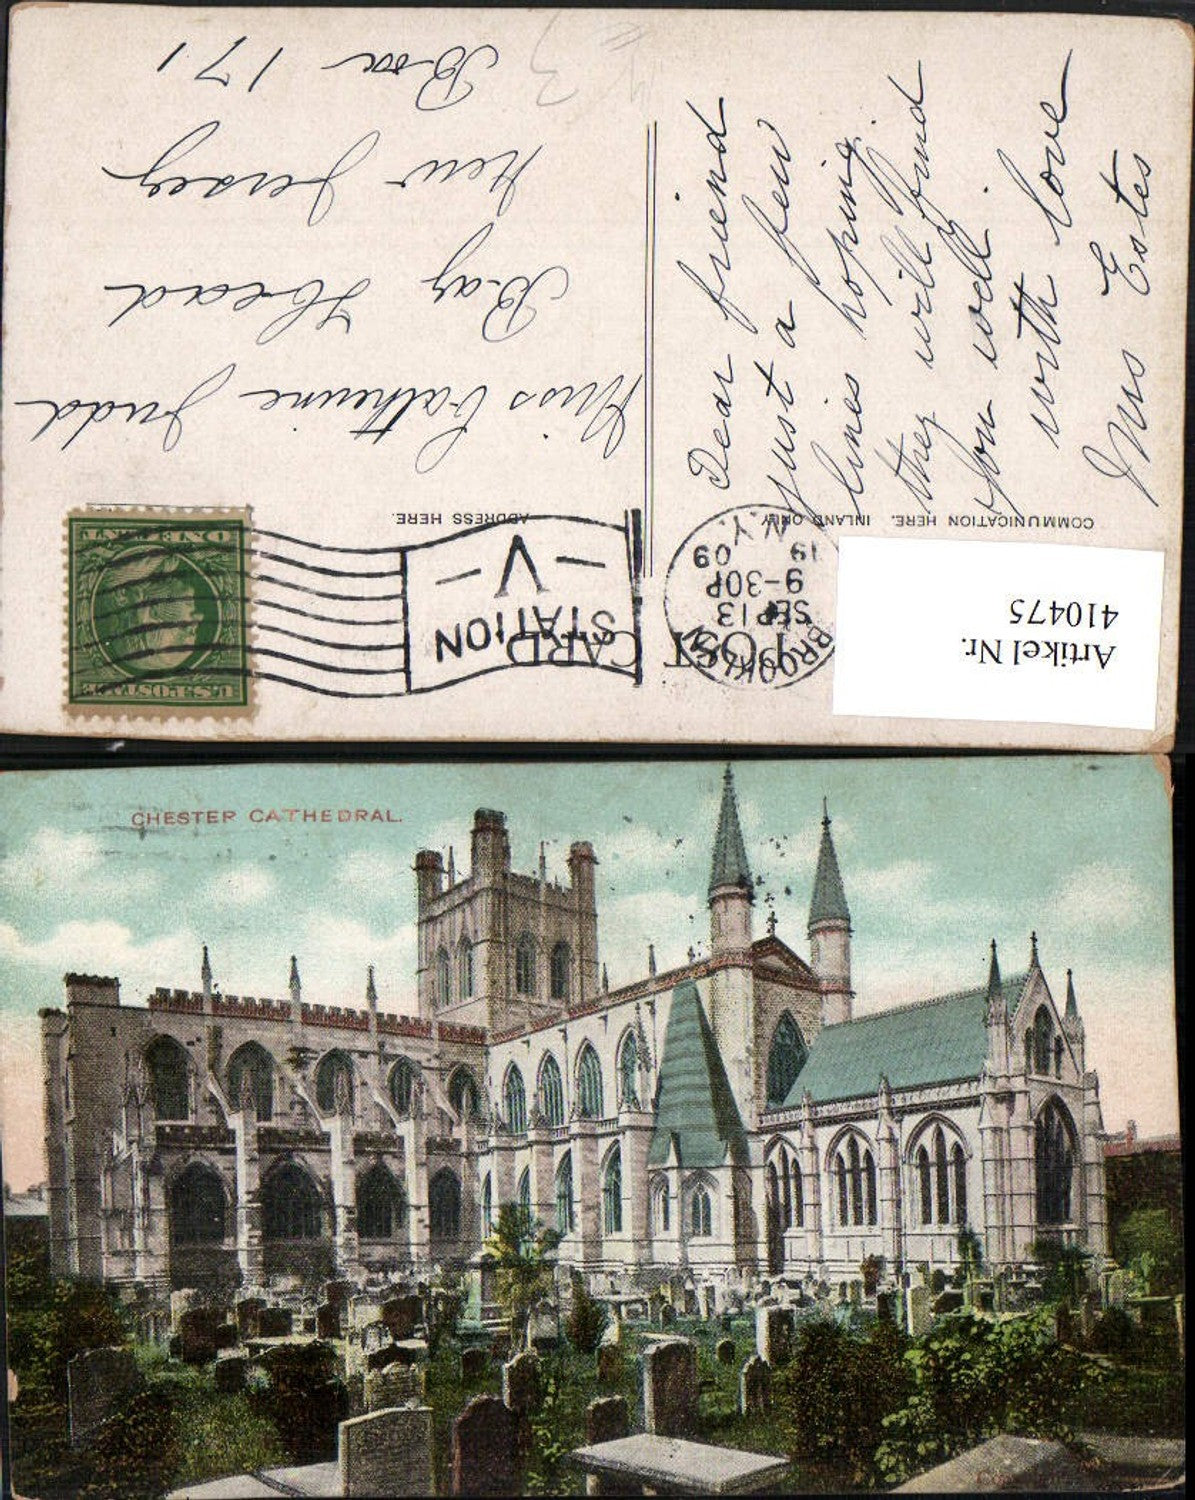 POST CARD
BROOKLYN
SEP 13
9-30P
19 09
N.Y.
STATION
- V -
U.S. POSTAGE
ONE CENT
COMMUNICATION HERE. INLAND ONLY
ADDRESS HERE.
Artikel Nr.
410475
Dear friend
just a few
lines hoping
they will find
you well
with love
Mrs Estes
Miss Catherine Judd
Bay Head
New Jersey
Box 171
3
CHESTER CATHEDRAL.